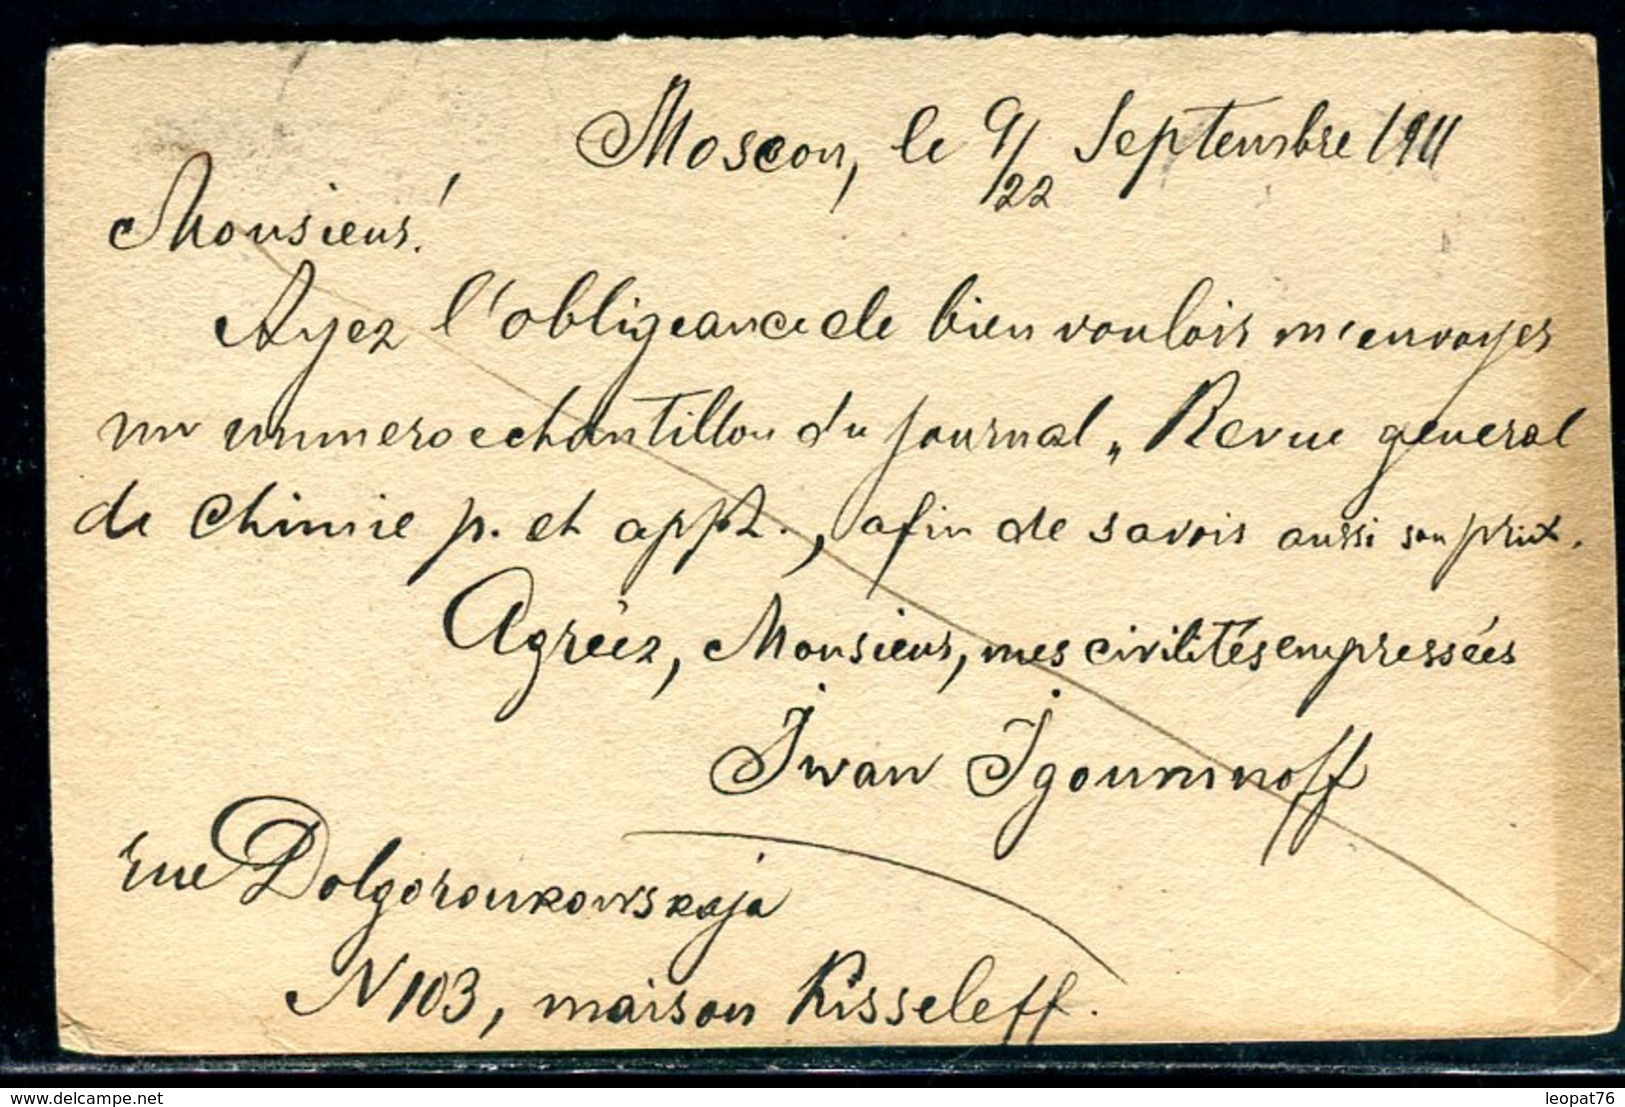 Moscou, le 9/22 Septembre 1911
Monsieur!
Ayez l'obligeance de bien vouloir m'envoyer
un numero echantillon du journal „Revue general
de Chimie p. et appl., afin de savoir aussi son prix.
Agréez, Monsieur, mes civilités empressées
Iwan Igoumnoff
rue Dolgoroukowskaja
N 103, maison Kisseleff.
delcampe.net
leopat76